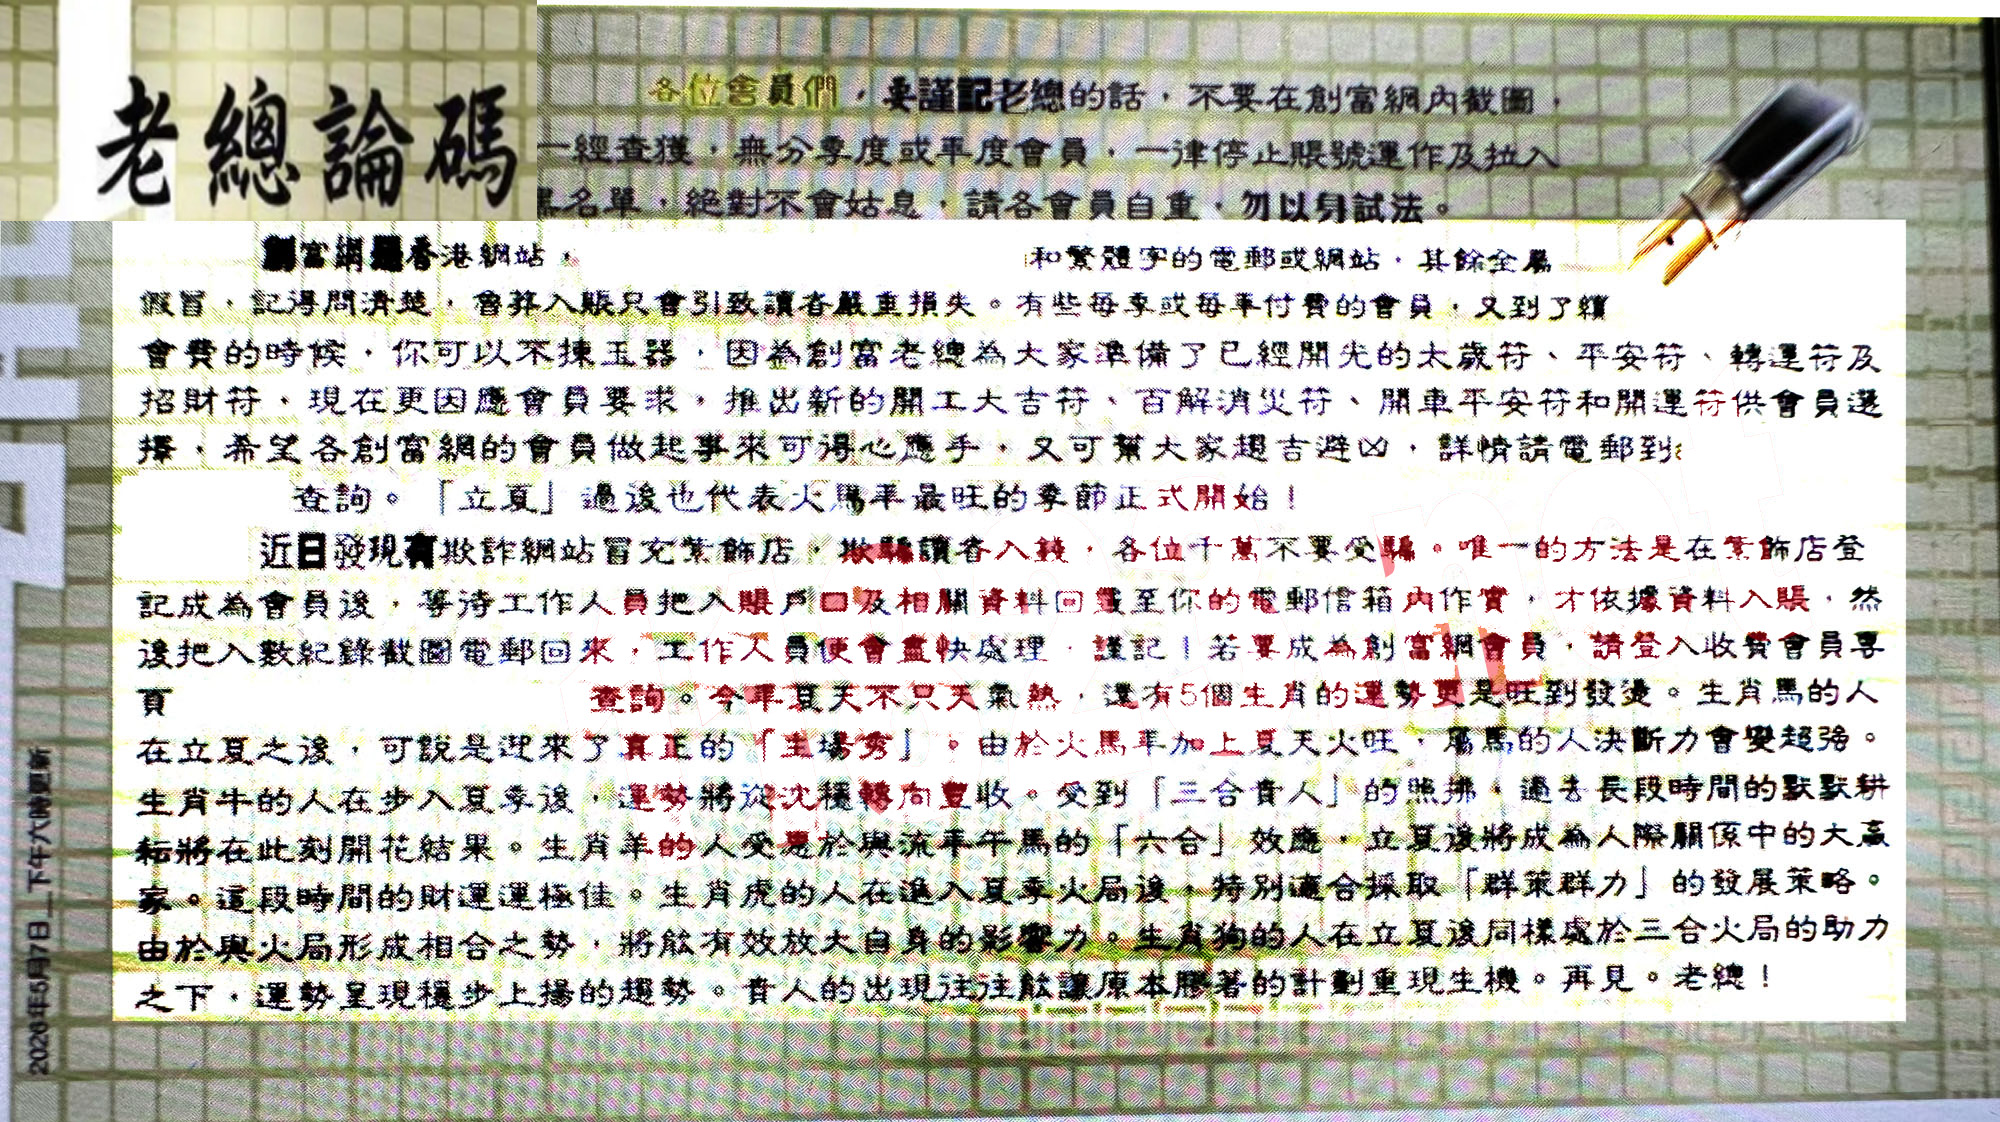 老總論碼
各位會員們，要謹記老總的話，不要在創富網內截圖，
一經查獲，無分季度或年度會員，一律停止賬號運作及拉入
黑名單，絕對不會姑息，請各會員自重，勿以身試法。
創富網是香港網站，
和繁體字的電郵或網站，其餘全屬
假冒，記得問清楚，魯莽入賬只會引致讀者嚴重損失。有些每季或每年付費的會員，又到了續
會費的時候，你可以不揀玉器，因為創富老總為大家準備了已經開光的太歲符、平安符、轉運符及
招財符，現在更因應會員要求，推出新的開工大吉符、百解消災符、開車平安符和開運符供會員選
擇，希望各創富網的會員做起事來可得心應手，又可幫大家趨吉避凶，詳情請電郵到
查詢。「立夏」過後也代表火馬年最旺的季節正式開始！
近日發現有欺詐網站冒充紫飾店，欺騙讀者入錢，各位千萬不要受騙。唯一的方法是在紫飾店登
記成為會員後，等待工作人員把入賬戶口及相關資料回覆至你的電郵信箱內作實，才依據資料入賬，然
後把入數紀錄截圖電郵回來，工作人員便會盡快處理，謹記！若要成為創富網會員，請登入收費會員專
頁
查詢。今年夏天不只天氣熱，還有5個生肖的運勢更是旺到發燙。生肖馬的人
在立夏之後，可說是迎來了真正的「主場秀」。由於火馬年加上夏天火旺，屬馬的人決斷力會變超強。
生肖牛的人在步入夏季後，運勢將從沈穩轉向豐收。受到「三合貴人」的照拂，過去長段時間的默默耕
耘將在此刻開花結果。生肖羊的人受惠於與流年午馬的「六合」效應，立夏後將成為人際關係中的大贏
家。這段時間的財運運極佳。生肖虎的人在進入夏季火局後，特別適合採取「群策群力」的發展策略。
由於與火局形成相合之勢，將能有效放大自身的影響力。生肖狗的人在立夏後同樣處於三合火局的助力
之下，運勢呈現穩步上揚的趨勢。貴人的出現往往能讓原本膠著的計劃重現生機。再見。老總！
2026年5月7日__下午六時更新